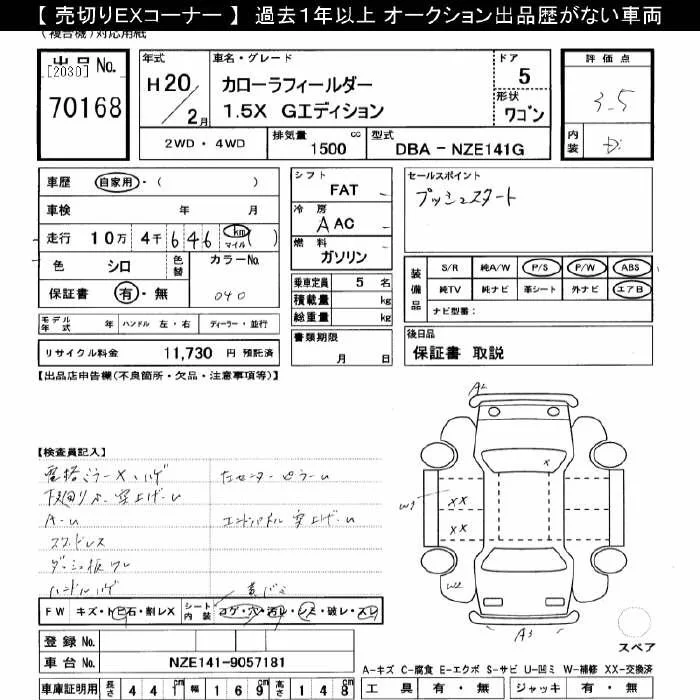 【 売切りEXコーナー 】 過去1年以上 オークション出品歴がない車両
(複合機)対応用紙
出品 No.
[2030]
70168
年式
H 20 / 2月
車名・グレード
カローラフィールダー
1.5X Gエディション
ドア
5
形状
ワゴン
評価点
3.5
内装
D
2WD・4WD
排気量
1500 cc
型式
DBA－NZE141G
車歴 自家用・( )
車検 年 月
走行 10万 4千 646 km マイル ( )
色 シロ 色替
カラーNo.
040
保証書 有・無
モデル年式 年 ハンドル 左・右 ディーラー・並行
リサイクル料金 11,730 円 預託済
シフト
FAT
冷房
A AC
燃料
ガソリン
乗車定員 5 名
積載量 kg
総重量 kg
書類期限
月 日
セールスポイント
プッシュスタート
装備品
S/R 純A/W P/S P/W ABS
純TV 純ナビ 革シート 外ナビ エアB
ナビ型番：
後日品
保証書 取説
【出品店申告欄(不良箇所・欠品・注意事項等)】
【検査員記入】
A-U
ダッシュ板ワレ
ハンドルハゲ
A2
W1
XX
XX
W2
A3
FW キズ・トビ石・割レX シート内装 コゲ・穴・汚レ・シミ・破レ・スレ
登録 No.
車台 No. NZE141-9057181
車庫証明用 長さ 441cm 幅 169cm 高さ 148cm
スペア
A－キズ C－腐食 E－エクボ S－サビ U－凹ミ W－補修 XX－交換済
工具 有・無 ジャッキ 有・無